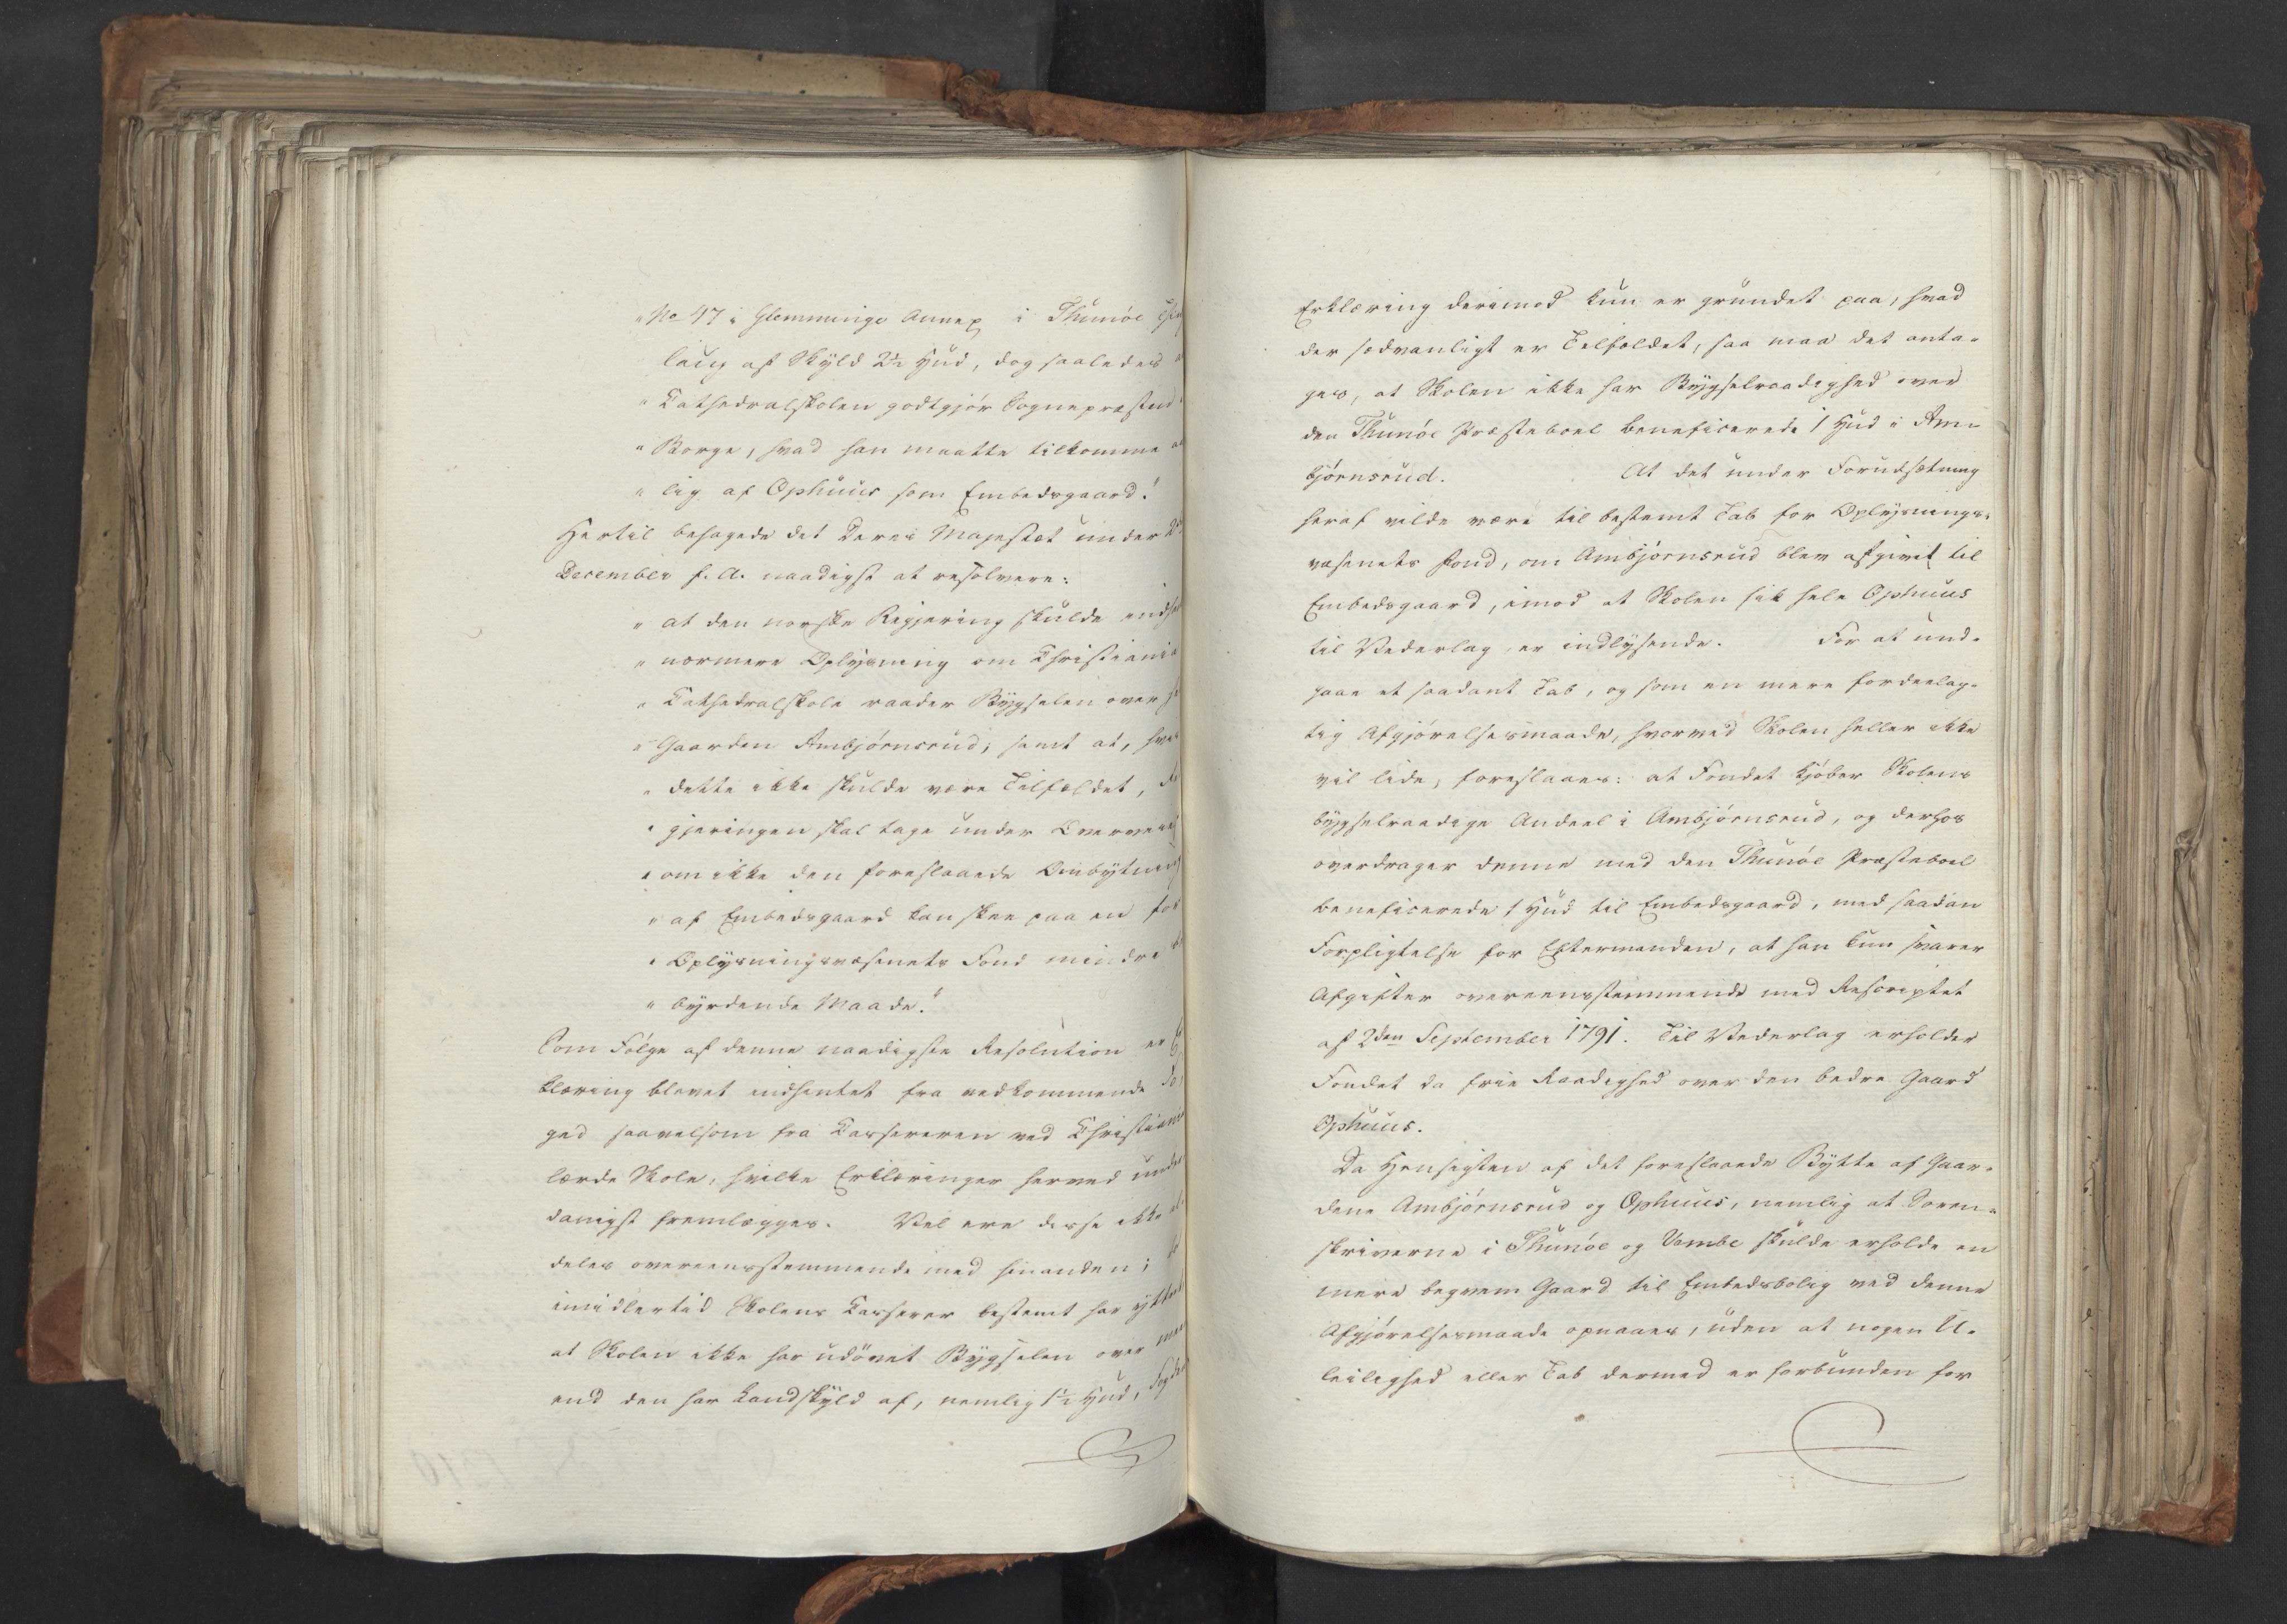 "No 47 i Glemminge Annex i Thunöe
laug af Skyld 2½ Hud, dog saaledes
" Cathedralskolen godtgjör Sognepræsten
" Borge, hvad han maatte tilkomme
" lig af Ophuus som Embedsgaard."
Hertil behagede det Deres Majestæt under
December f. A. naadigst at resolvere:
" at den norske Regjering skulde
" nærmere Oplysning om Christiania
" Cathedralskole raader Bygselen over
" Gaarden Ambjörnsrud, samt at,
" dette ikke skulde være Tilfældet,
" gjeringen skal tage under
" om ikke den foreslaaede Ombytning
" af Embedsgaard kan skee paa en for
" Oplysningsvæsenets Fond mindre
" byrdende Maade."
Som Fölge af denne naadigste Resolution er
klæring blevet indhentet fra vedkommende
ged saavelsom fra Cassereren ved Christiania
lærde Skole, hvilke Erklæringer herved under
danigst fremlægges. Vel ere disse ikke
deles overeensstemmende med hinanden;
imidlertid Skolens Casserer bestemt har yttret
at Skolen ikke har udövet Bygselen over meer
end den har Landskyld af, nemlig 1½ Hud,
Erklæring derimod kun er grundet paa, hvad
der sædvanligt er Tilfældet, saa maa det anta-
ges, at Skolen ikke har Bygselraadighed over
den Thunöe Præsteboel beneficerede 1 Hud i Am-
björnsrud. At det under Forudsætning
heraf vilde være til bestemt Tab for Oplysnings-
væsenets Fond, om Ambjörnsrud blev afgivet til
Embedsgaard, imod at Skolen fik hele Ophuus
til Vederlag, er indlysende. For at und-
gaae et saadant Tab, og som en mere fordeelag-
tig Afgjörelsesmaade, hvorved Skolen heller ikke
vil lide, foreslaaes: at Fondet kjöber Skolens
bygselraadige Andeel i Ambjörnsrud, og derhos
overdrager denne med den Thunöe Præsteboel
beneficerede 1 Hud til Embedsgaard, med saadan
Forpligtelse for Eftermanden, at han kun svarer
Afgifter overeensstemmende med Rescriptet
af 2den September 1791. Til Vederlag erholder
Fondet da frie Raadighed over den bedre Gaard
Ophuus.
Da Hensigten af det foreslaaede Bytte af Gaar-
dene Ambjörnsrud og Ophuus, nemlig at Soren-
skriverne i Thunöe og Vembe skulde erholde en
mere beqvem Gaard til Embedsbolig ved denne
Afgjörelsesmaade opnaaes, uden at nogen U-
leilighed eller Tab dermed er forbunden for